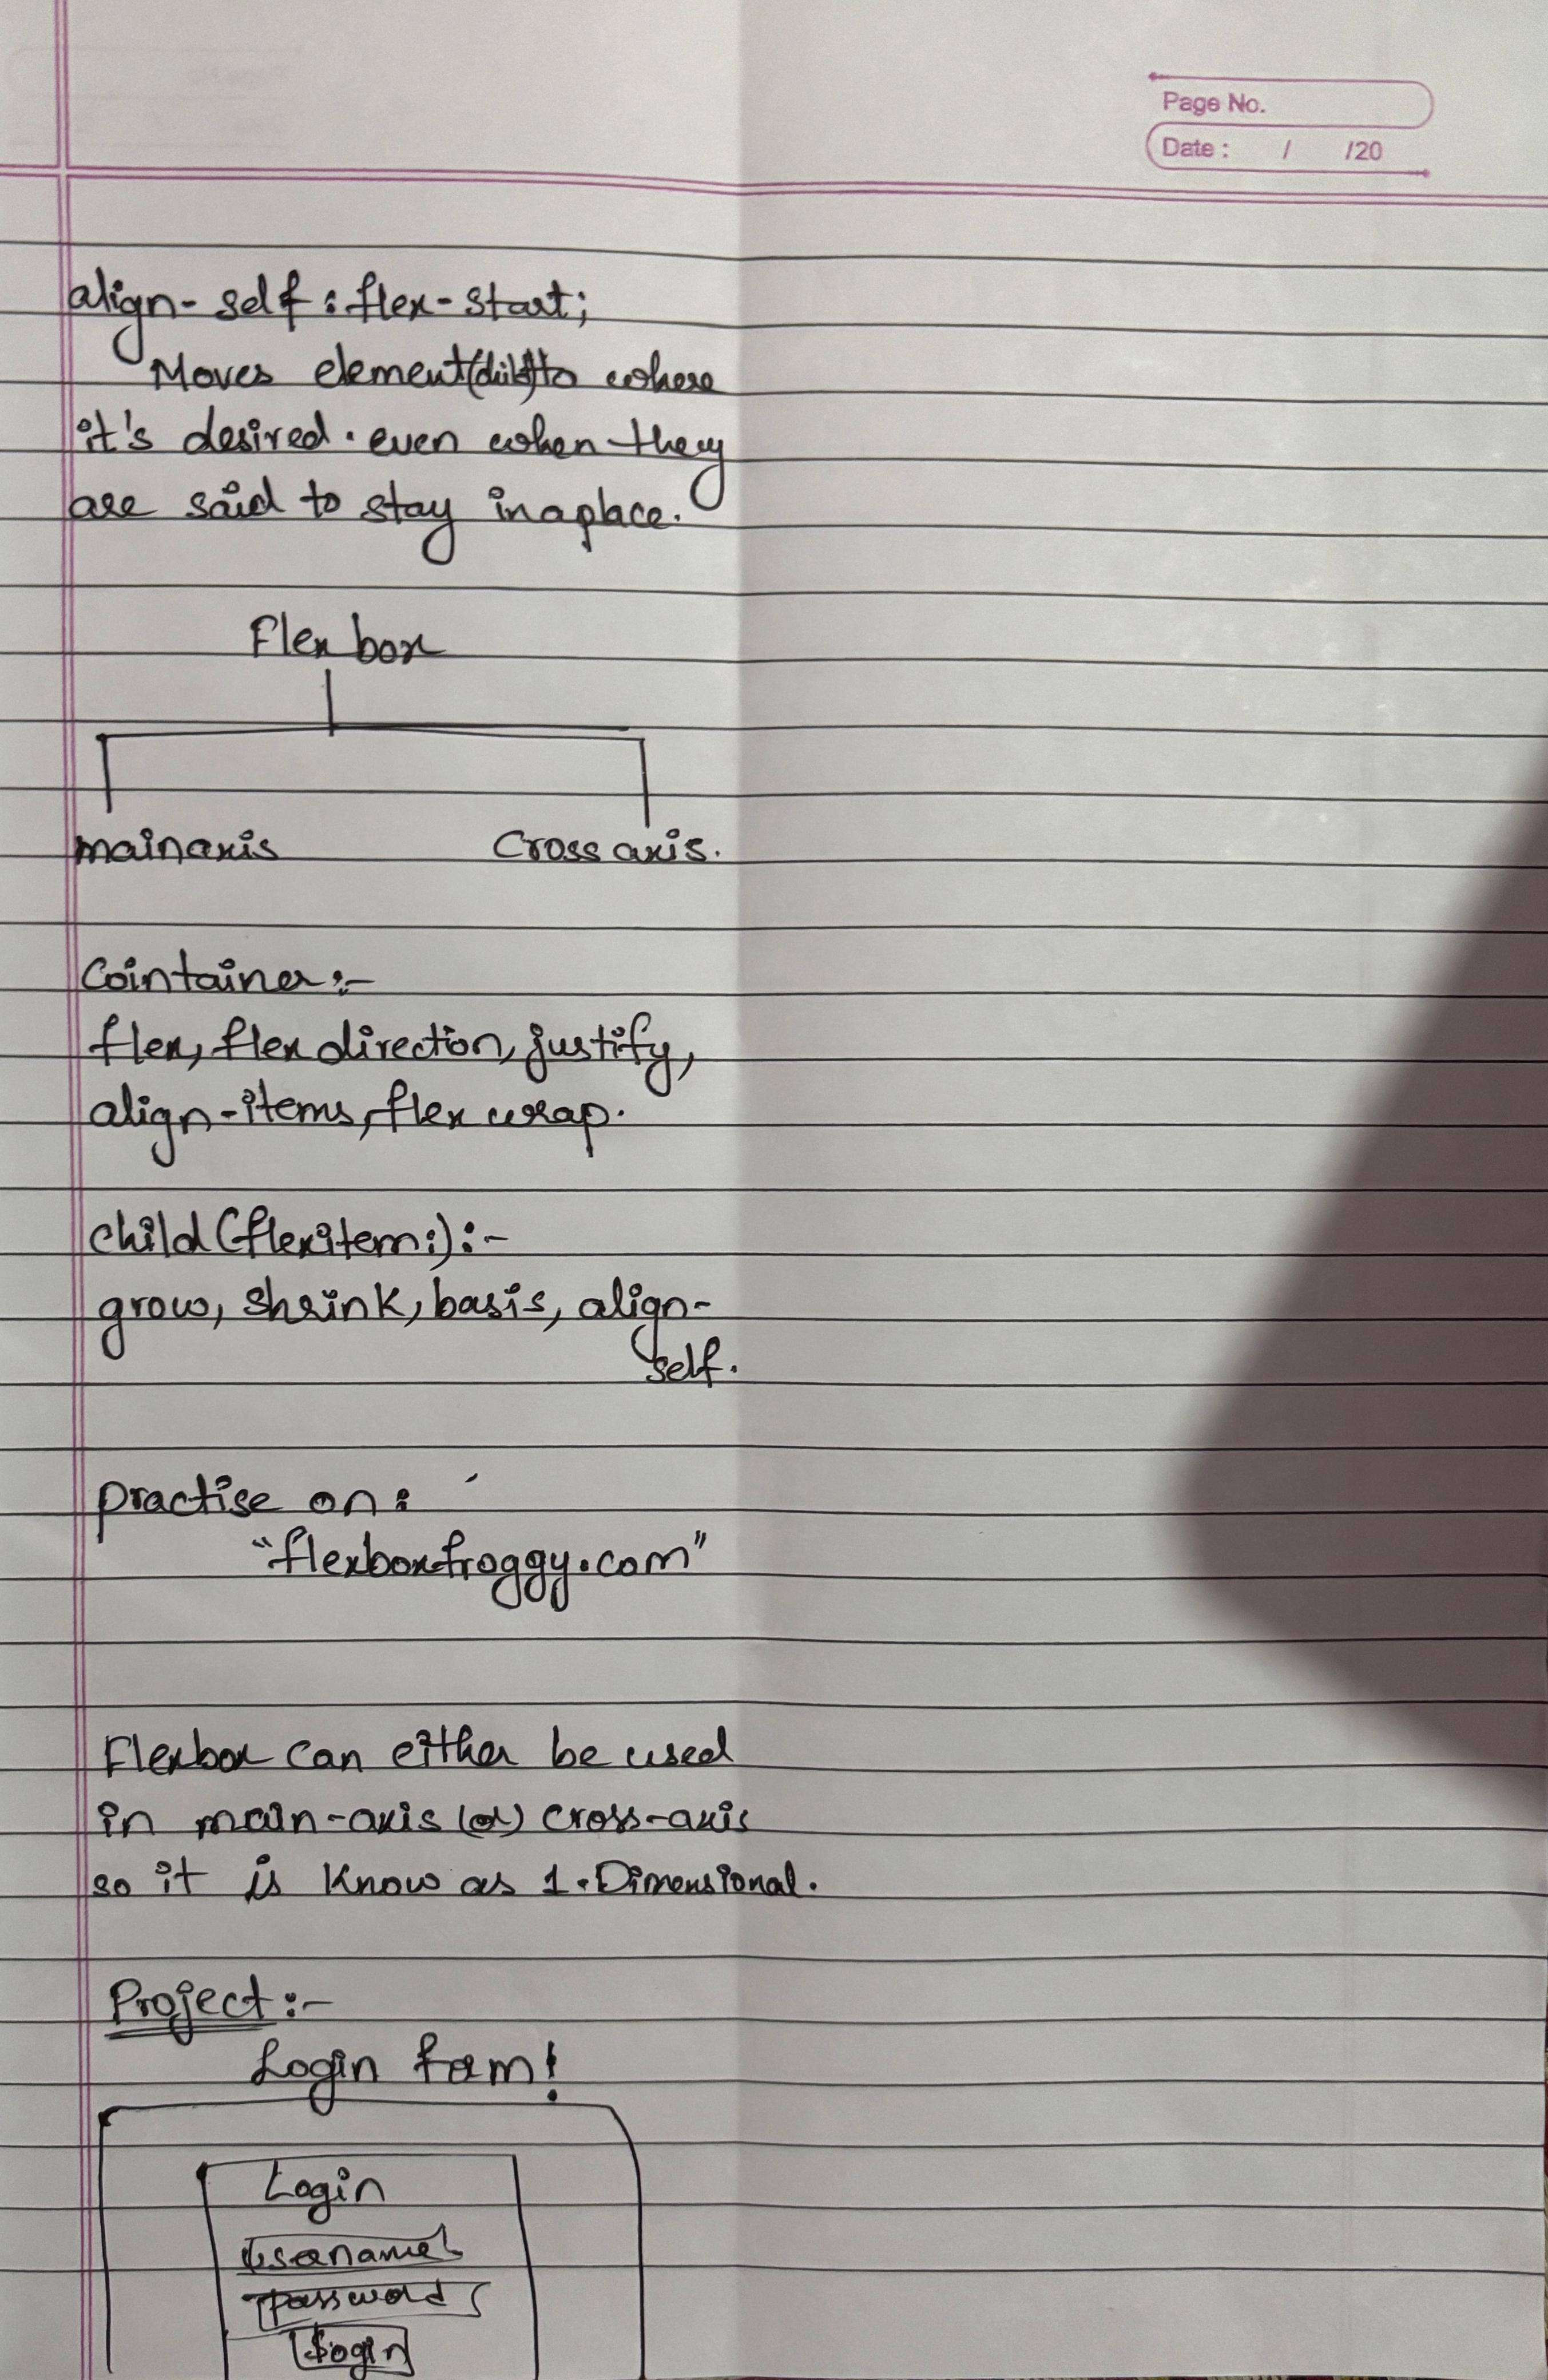 Page No.
Date : / /20
align-self:flex-start;
Moves element(child)to where
it's desired. even when they
are said to stay in a place.
Flex box
main axis Cross axis.
Cointainer:-
flex, flex direction, justify,
align-items, flex wrap.
child (flexitem:):-
grow, shrink, basis, align-
self.
practise on:
"flexboxfroggy.com"
Flexbox can either be used
in main-axis (or) cross-axis
so it is know as 1-Dimensional.
Project:-
Login form!
Login
Username
Password
Login